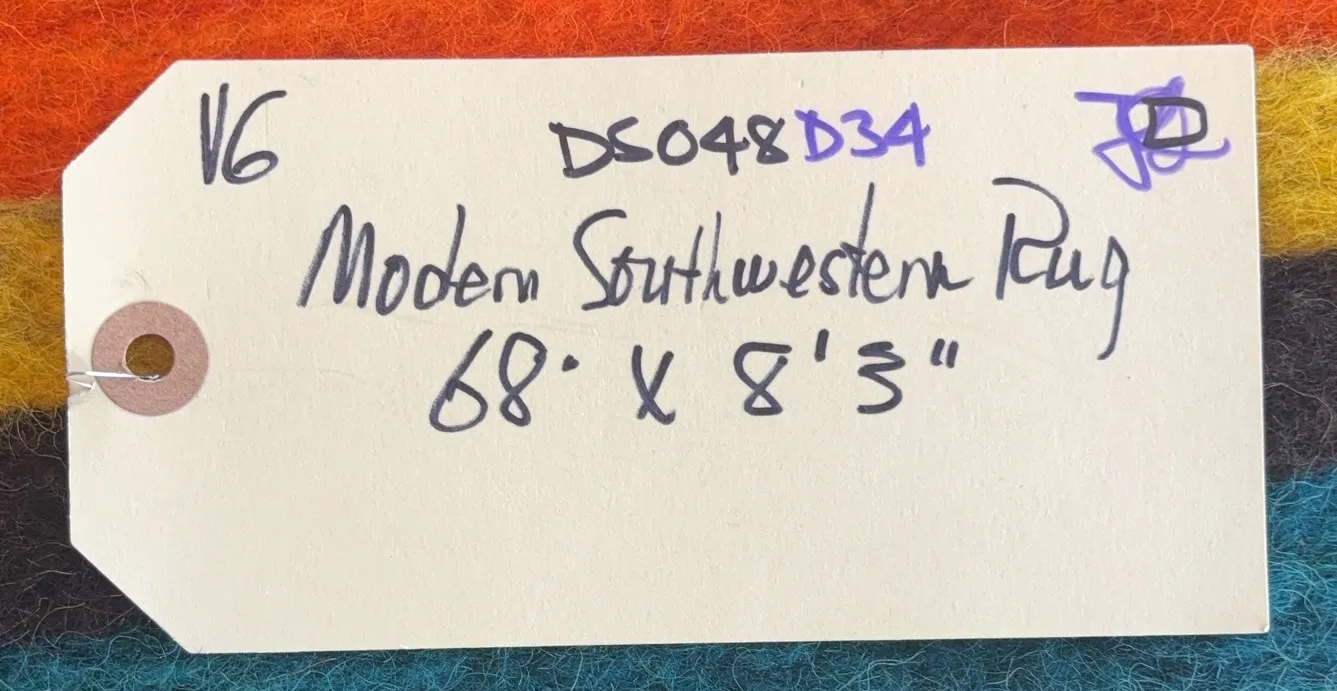 V6 DS048D34
Modern Southwestern Rug
68" X 8'3"